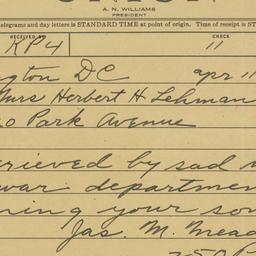 A. N. WILLIAMS
PRESIDENT
telegrams and day letters is STANDARD TIME at point of origin. Time of receipt is ST
RECEIVED
CHECK
KP4
11
gton DC apr 11
Mrs Herbert H Lehman
0 Park Avenue
rieved by sad
war departmen
ning your so
Jas. M. Mead
250P